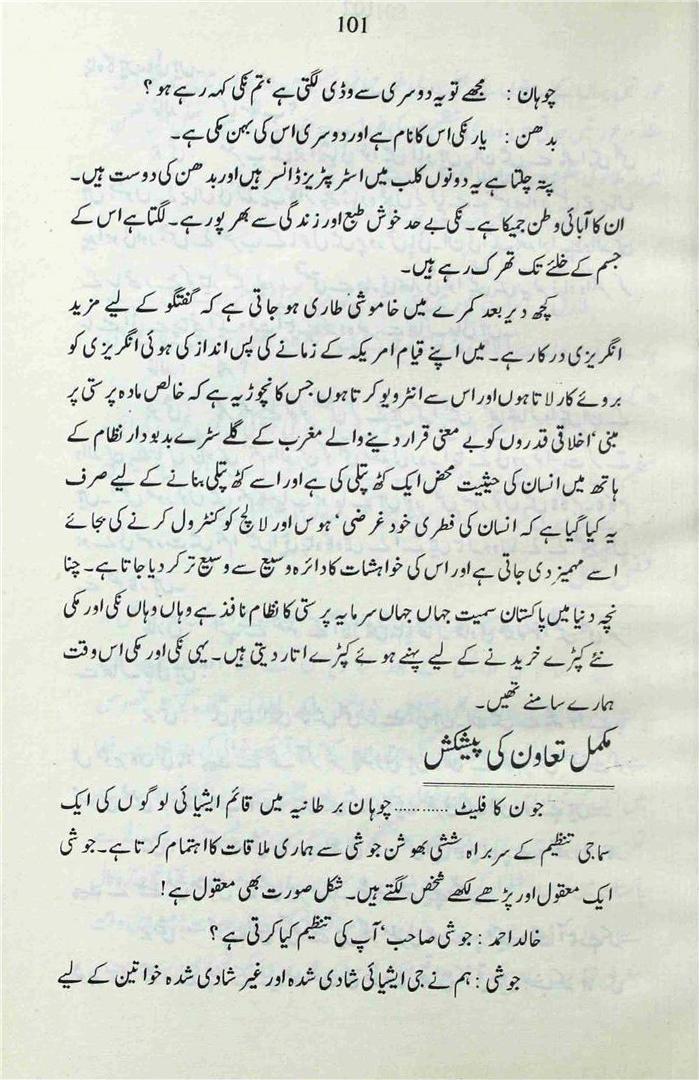 101
چوہان : مجھے تو یہ دوسری سے وڈی لگتی ہے‘ تم نکی کہہ رہے ہو ؟
بدھن : یار نکی اس کا نام ہے اور دوسری اس کی بہن مکی ہے۔
پتہ چلتا ہے یہ دونوں کلب میں اسٹرپٹیز ڈانسر ہیں اور بدھن کی دوست ہیں۔
ان کا آبائی وطن جمیکا ہے۔ نکی بے حد خوش طبع اور زندگی سے بھر پور ہے۔ لگتا ہے اس کے
جسم کے خلئے تک تھرک رہے ہیں۔
کچھ دیر بعد کمرے میں خاموشی طاری ہو جاتی ہے کہ گفتگو کے لیے مزید
انگریزی درکار ہے۔ میں اپنے قیام امریکہ کے زمانے کی پس انداز کی ہوئی انگریزی کو
بروئے کار لاتا ہوں اور اس سے انٹرویو کرتا ہوں جس کا نچوڑ یہ ہے کہ خالص مادہ پرستی پر
مبنی‘ اخلاقی قدروں کو بے معنی قرار دینے والے مغرب کے گلے سڑے بدبودار نظام کے
ہاتھ میں انسان کی حیثیت محض ایک کٹھ پتلی کی ہے اور اسے کٹھ پتلی بنانے کے لیے صرف
یہ کیا گیا ہے کہ انسان کی فطری خود غرضی‘ ہوس اور لالچ کو کنٹرول کرنے کی بجائے
اسے مہمیز دی جاتی ہے اور اس کی خواہشات کا دائرہ وسیع سے وسیع تر کر دیا جاتا ہے۔ چنا
نچہ دنیا میں پاکستان سمیت جہاں جہاں سرمایہ پرستی کا نظام نافذ ہے وہاں وہاں نکی اور مکی
نئے کپڑے خریدنے کے لیے پہنے ہوئے کپڑے اتار دیتی ہیں۔ یہی نکی اور مکی اس وقت
ہمارے سامنے تھیں۔
مکمل تعاون کی پیشکش
جون کا فلیٹ ........... چوہان برطانیہ میں قائم ایشیائی لوگوں کی ایک
سماجی تنظیم کے سربراہ ششی بھوشن جوشی سے ہماری ملاقات کا اہتمام کرتا ہے۔ جوشی
ایک معقول اور پڑھے لکھے شخص لگتے ہیں۔ شکل صورت بھی معقول ہے !
خالد احمد : جوشی صاحب‘ آپ کی تنظیم کیا کرتی ہے ؟
جوشی : ہم نے جی ایشیائی شادی شدہ اور غیر شادی شدہ خواتین کے لیے